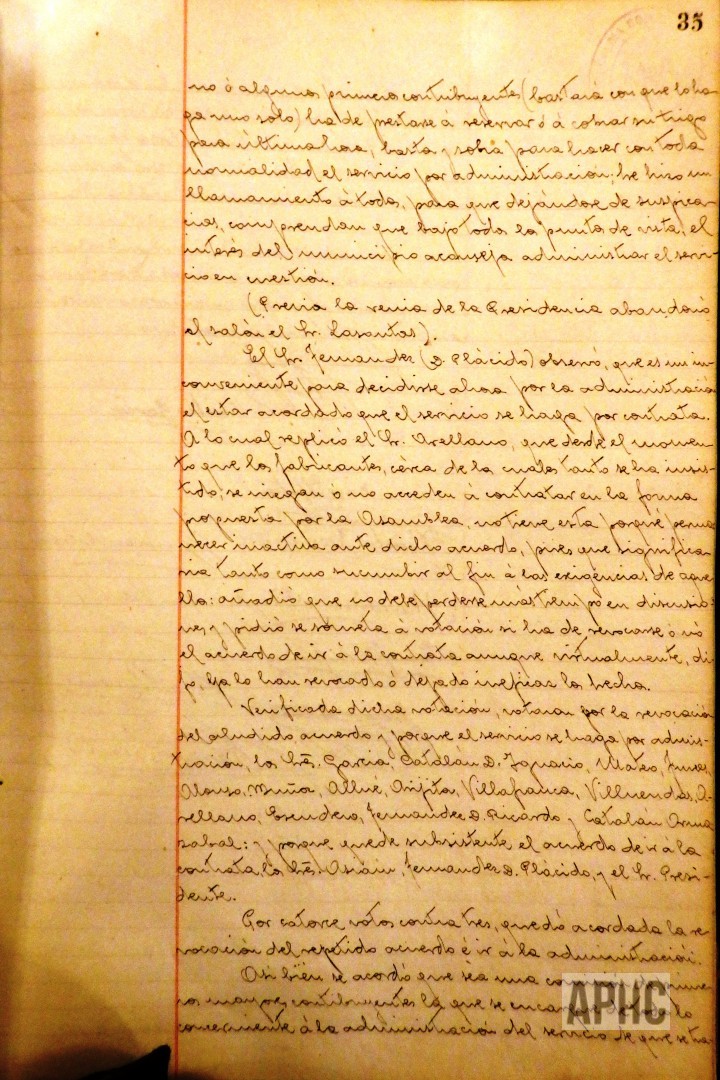 35
no ó algunos primeros contribuyentes (bastará con que lo ha-
ga uno solo) ha de prestarse á reservar ó á cobrar su trigo
para última hora, basta y sobra para hacer con toda
normalidad el servicio por administración; he hizo un
llamamiento á todos, para que dejándose de suspica-
cias, comprendan que bajo todos los puntos de vista, el
interés del municipio aconseja administrar el servi-
cio en cuestión.
(Previa la venia de la Presidencia abandonó
el salón el Sr. Lasantas).
El Sr. Fernandez (D. Plácido) observó, que es un in-
conveniente para decidirse ahora por la administración
el estar acordado que el servicio se haga por contrata.
A lo cual replicó el Sr. Arellano, que desde el momen-
to que los fabricantes, cerca de los cuales tanto se ha insis-
tido, se niegan ó no acceden á contratar en la forma
propuesta por la Asamblea, no tiene esta porqué perma-
necer inactiva ante dicho acuerdo, pues que significa-
ria tanto como sucumbir al fin á las exigencias de aque-
llos: añadió que no debe perderse más tiempo en discusio-
nes y pidió se someta á votación si ha de revocarse ó nó
el acuerdo de ir á la contrata aunque virtualmente, di-
jo, ya lo han revocado ó dejado ineficaz los hechos.
Verificada dicha votación, votaron por la revocación
del aludido acuerdo y porque el servicio se haga por adminis-
tración, los Sres. Garcia, Catalán D. Ignacio, Mateo,
Alonso, Muñoz, Allué, Arijita, Villafranca, Villuendas, A-
rellano, Escudero, Fernandez D. Ricardo y Catalán
zabal: y porque quede subsistente el acuerdo de ir á la
contrata los Sres. Osiáin, Fernandez D. Plácido, y el Sr. Presi-
dente.
Por catorce votos contra tres, quedó acordada la re-
vocación del repetido acuerdo é ir á la administración.
Asi bien se acordó que sea una
ros mayores contribuyentes la que se encargue de todo lo
concerniente á la administración del servicio de que se tra-
APHC